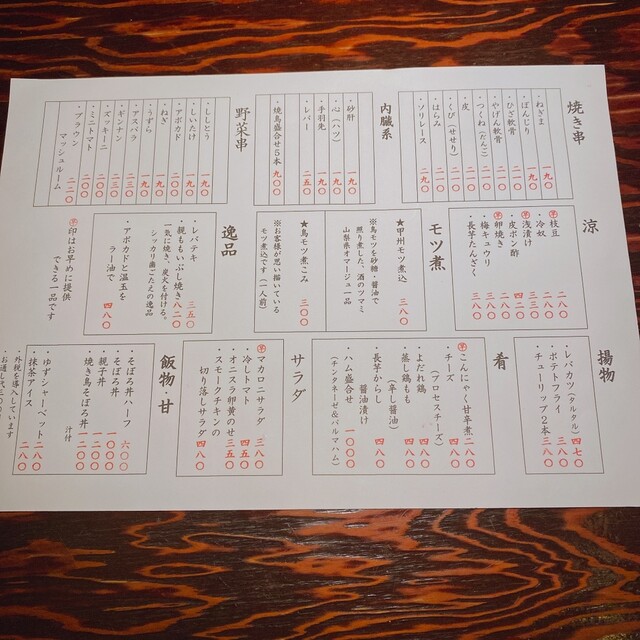 焼き串
・ねぎま 一九〇
・ぼんじり 一九〇
・ひざ軟骨
・やげん軟骨
・つくね(たんこ)
・皮
・くび(せせり)
・はらみ
・ソリレース 二九〇
内臓系
砂肝 一九〇
心(ハツ) 一九〇
手羽先 一九〇
レバー 二五〇
・焼鳥盛合せ5本 九〇〇
野菜串
・ししとう 一九〇
・しいたけ 一九〇
・アボカド 二〇〇
・ねぎ 一九〇
・うずら 一九〇
・アスパラ 二三〇
・ギンナン 二三〇
・ズッキーニ 二〇〇
・ミニトマト 二〇〇
・ブラウン
マッシュルーム 二二〇
涼
早・枝豆 二八〇
・冷奴 二八〇
早・浅漬け 三三〇
・皮ポン酢
早・卵焼き
・梅キュウリ 三八〇
・長芋たんざく 三八〇
モツ煮
★甲州モツ煮込 三八〇
※鳥モツを砂糖・醤油で
照り煮した、酒のツマミ
山梨県オマージュ一品
★鳥モツ煮こみ 三〇〇
※お客様が思い描いている
モツ煮込です(一人前)
逸品
・レバテキ 三五〇
・親ももいぶし焼き 八二〇
一気に焼き、炭火を付ける。
シッカリ歯ごたえの逸品
・アボカドと温玉を
ラー油で 四八〇
早印はお早めに提供
できる一品です
揚物
・レバカツ(タルタル) 四七〇
・ポテトフライ 三八〇
・チューリップ2本 三八〇
肴
早・こんにゃく甘辛煮 二八〇
・チーズ 四八〇
(プロセスチーズ)
・よだれ鶏 四八〇
・蒸し鶏もも 四八〇
(辛し醤油)
・長芋からし
醤油漬け 四八〇
・ハム盛合せ 一〇〇〇
(チンタネーゼ&パルマハム)
サラダ
早・マカロニサラダ 三八〇
・冷しトマト 四五〇
・オニスラ卵黄のせ 三五〇
・スモークチキンの
切り落しサラダ 四八〇
飯物・甘
・そぼろ丼ハーフ 六〇〇
・そぼろ丼 一〇〇〇
・親子丼 一〇〇〇
・焼き鳥そぼろ丼 一二〇〇
汁付
・ゆずシャーベット 二八〇
・抹茶アイス 二八〇
・外税を導入しています